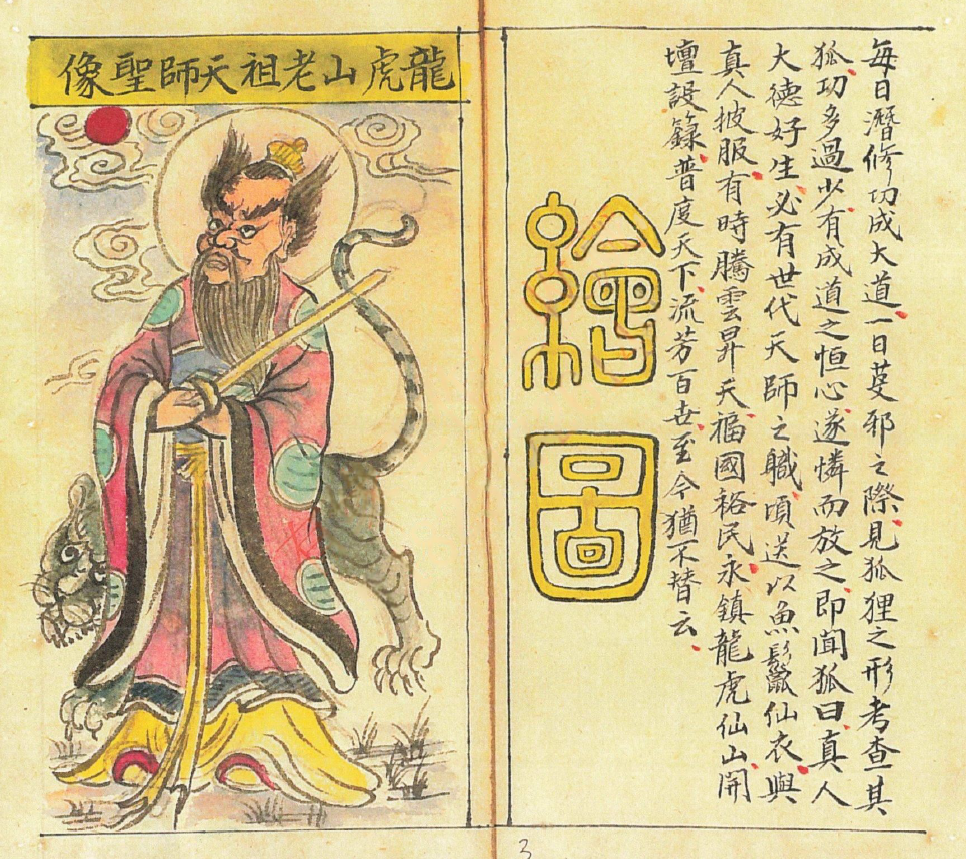 每日潛修功成大道一日芟邪之際見狐狸之形考查其
狐功多過少有成道之恒心遂憐而放之即聞狐曰真人
大德好生必有世代天師之職頃送以魚鬣仙衣與
真人披服有時騰雲昇天福國裕民永鎮龍虎仙山開
壇設籙普度天下流芳百世至今猶不替云
繪圖
龍虎山老祖天師聖像
3